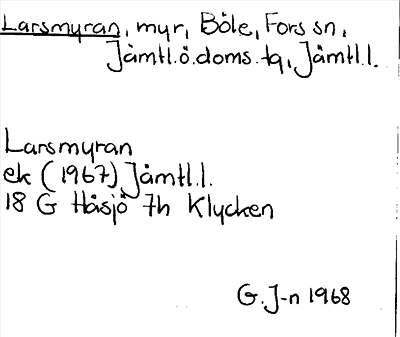 Larsmyran, myr, Böle, Fors sn,
Jämtl.ö.doms.tg, Jämtl.l.
Larsmyran
ek (1967) Jämtl.l.
18 G Håsjö 7h Klycken
G. J-n 1968